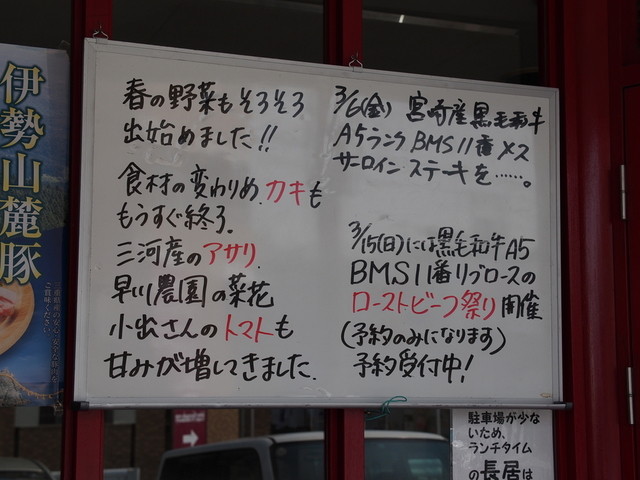 伊勢山麓豚
春の野菜もそろそろ
出始めました!!
食材の変わりめ.カキも
もうすぐ終了.
三河産のアサリ
早川農園の菜花
小出さんのトマトも
甘みが増してきました.
3/6(金) 宮崎産黒毛和牛
A5ランク BMS11番メス
サーロインステーキを……。
3/15(日)には黒毛和牛A5
BMS11番リブロースの
ローストビーフ祭り開催
(予約のみになります)
予約受付中!
駐車場が少な
いため、
ランチタイム
の長居は